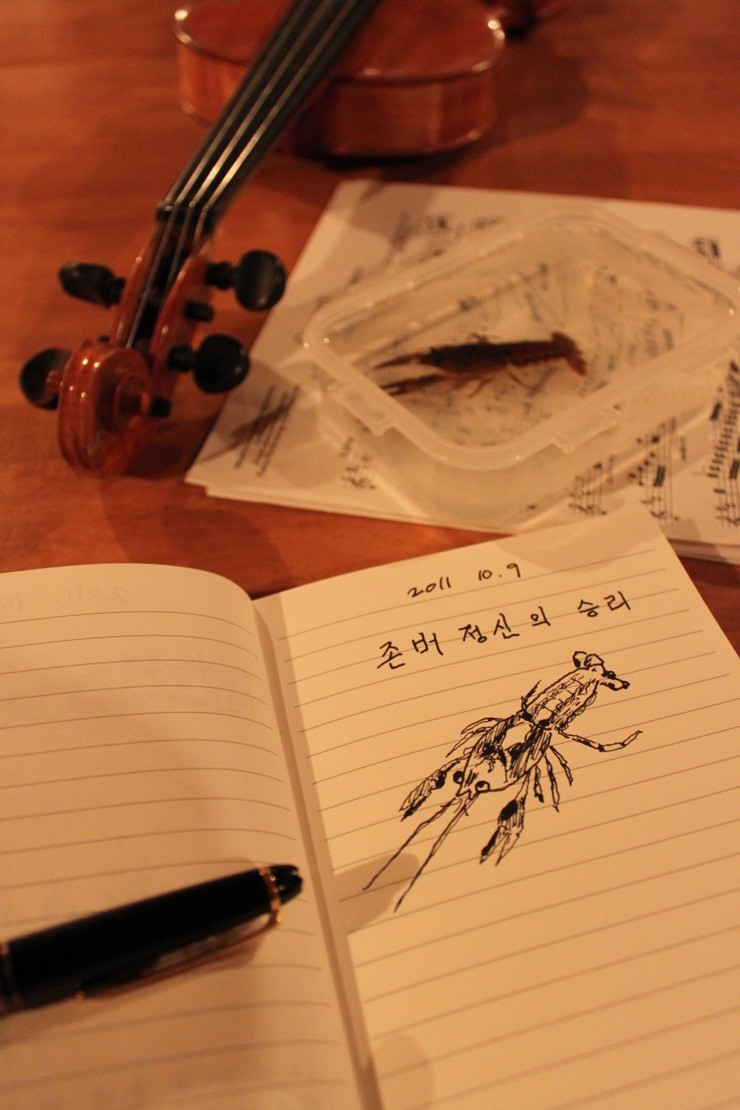 2011 10.9
존버 정신의 승리